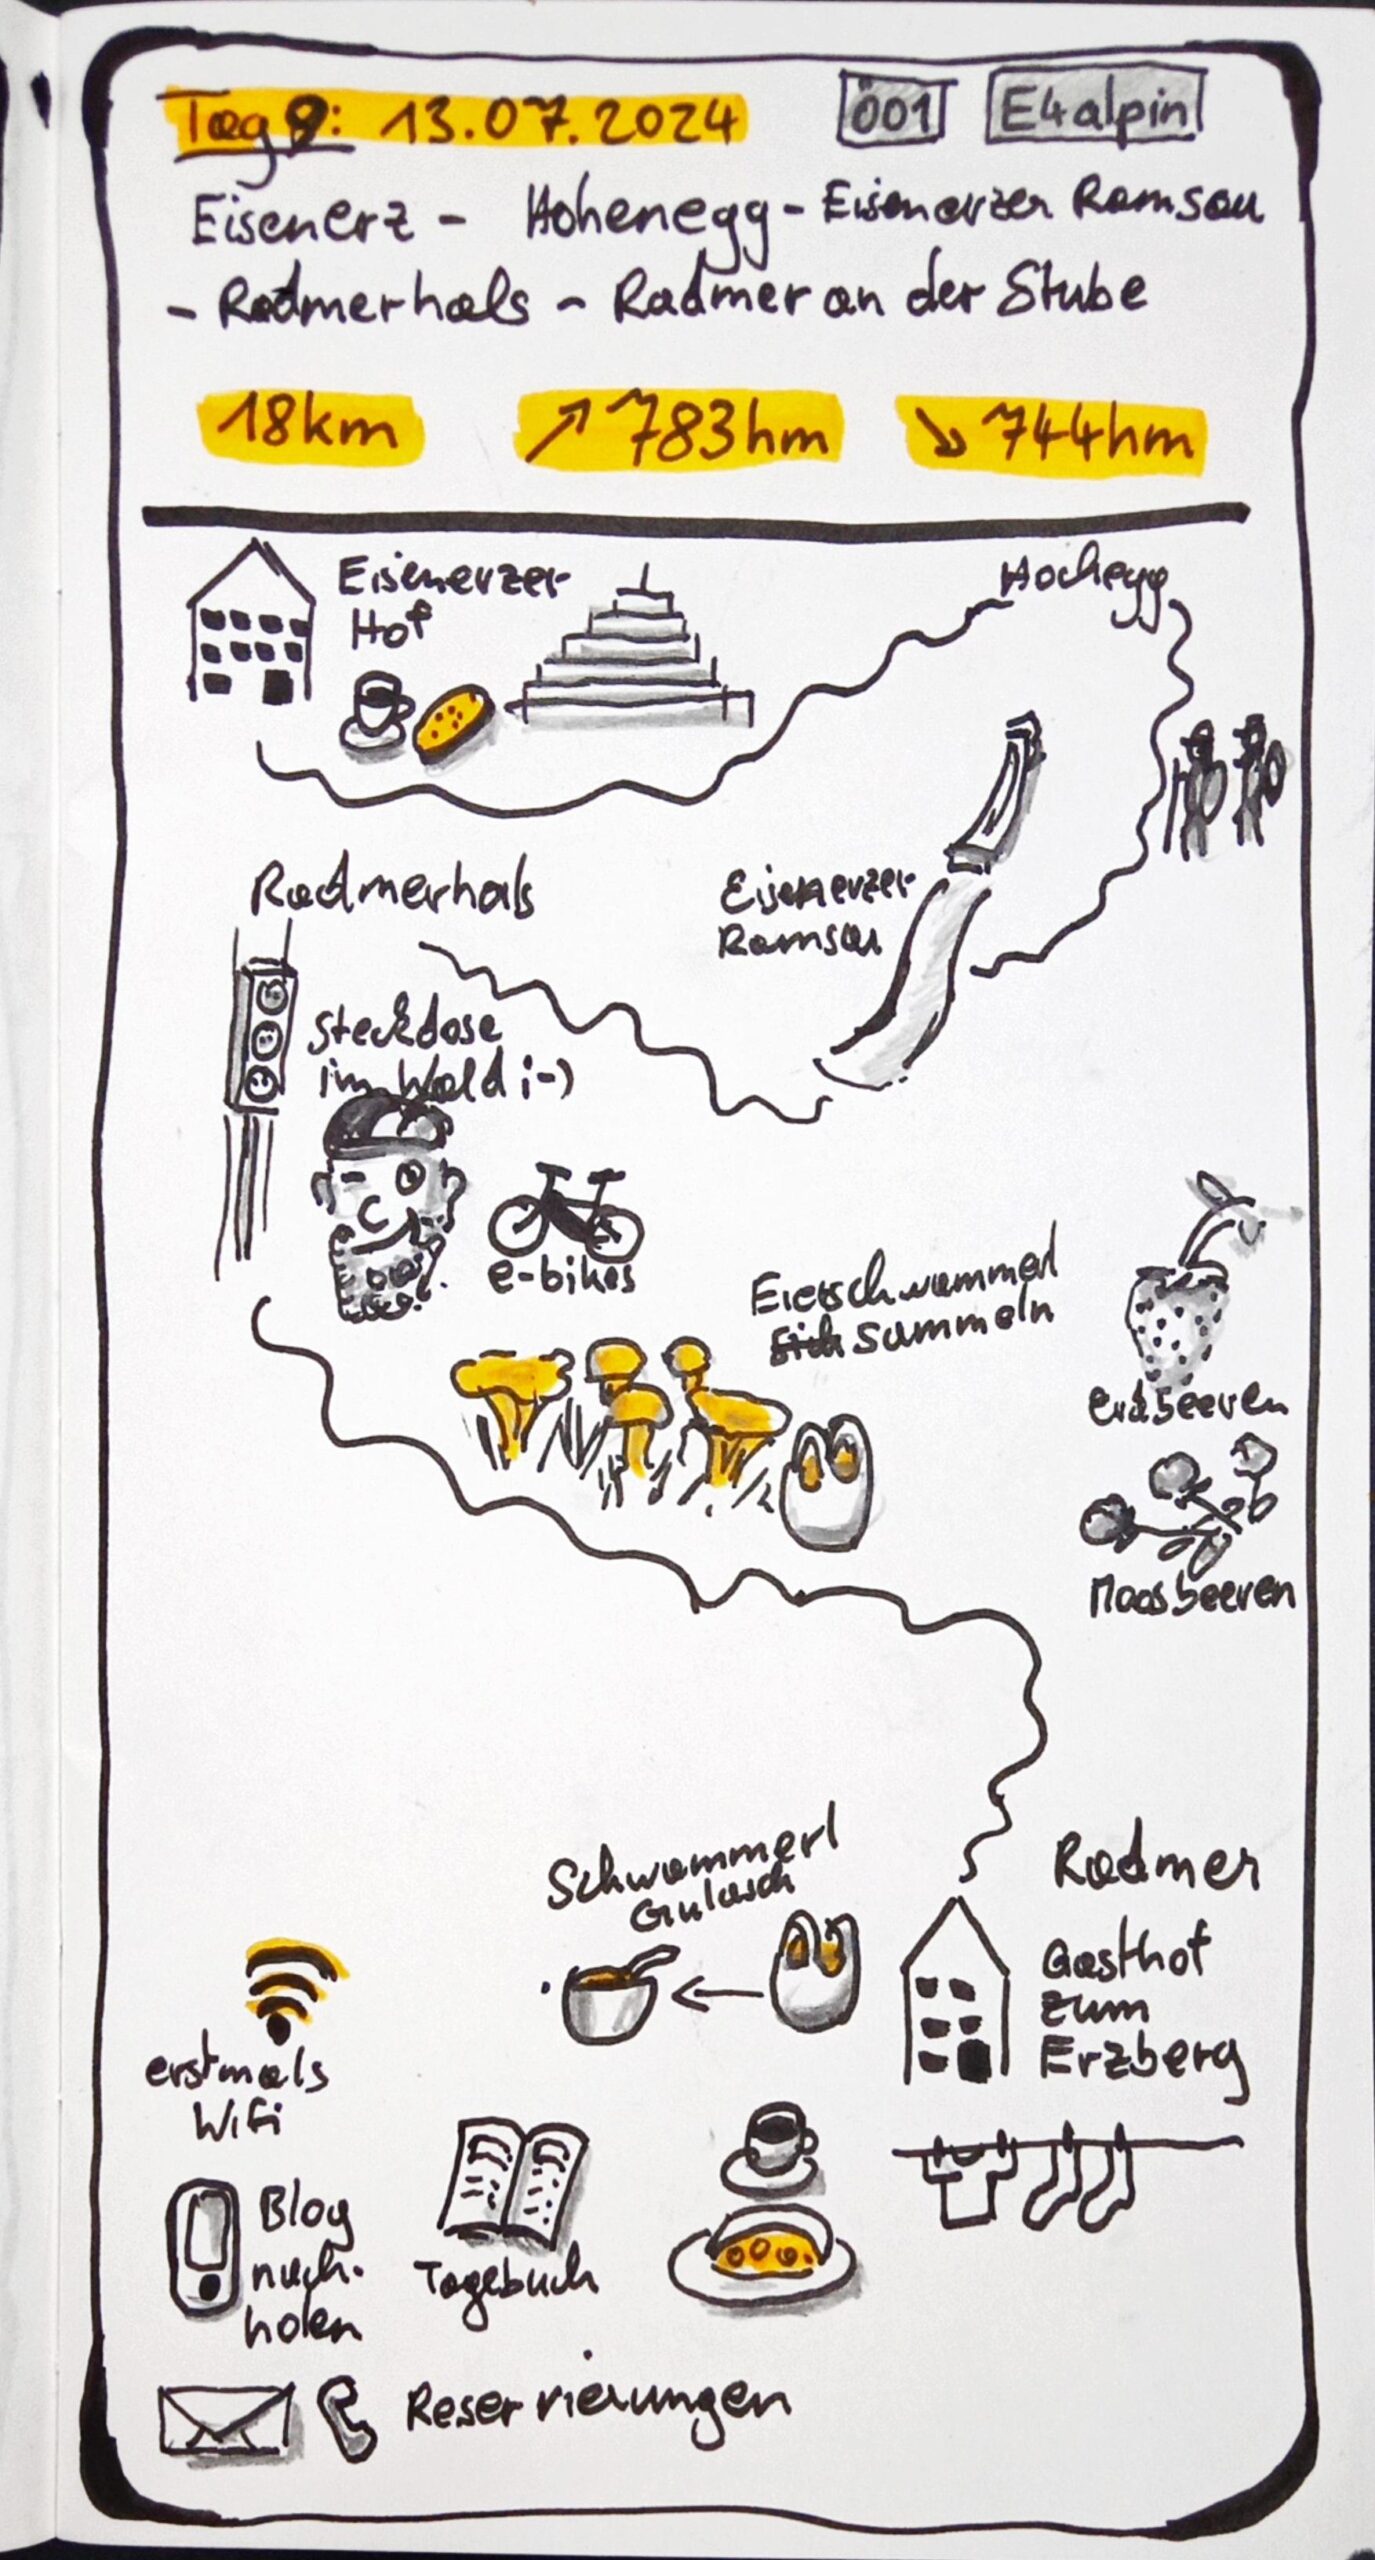 Tag 9: 13.07.2024
Ö01
E4alpin
Eisenerz - Hohenegg - Eisenerzer Ramsau
- Radmerhals - Radmer an der Stube
18km
↗ 783hm
↘ 744hm
Eisenerzer
Hof
Hochegg
Eisenerzer
Ramsau
Radmerhals
Steckdose
im Wald ;-)
e-bikes
Eierschwammerl
sammeln
Erdbeeren
Moosbeeren
Schwammerl
Gulasch
Radmer
Gasthof
zum
Erzberg
erstmals
Wifi
Blog
nach-
holen
Tagebuch
Reservierungen